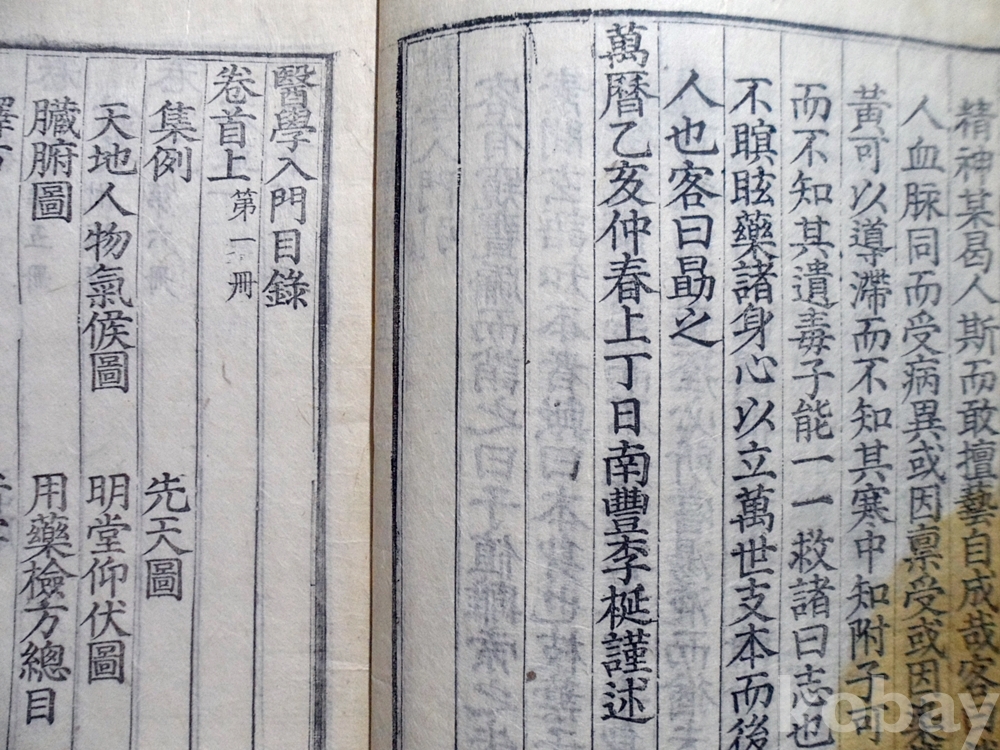 精神某曷人斯而敢擅藝自成哉客曰
人血脉同而受病異或因稟受或因染
黃可以導滯而不知其寒中知附子可
而不知其遺毒子能一一救諸曰志也
不瞑眩藥諸身心以立萬世支本而後
人也客曰勗之
萬曆乙亥仲春上丁日南豐李梴謹述
醫學入門目錄
卷首上 第一冊
集例 先天圖
天地人物氣候圖 明堂仰伏圖
臟腑圖 用藥檢方總目
釋方
kobay